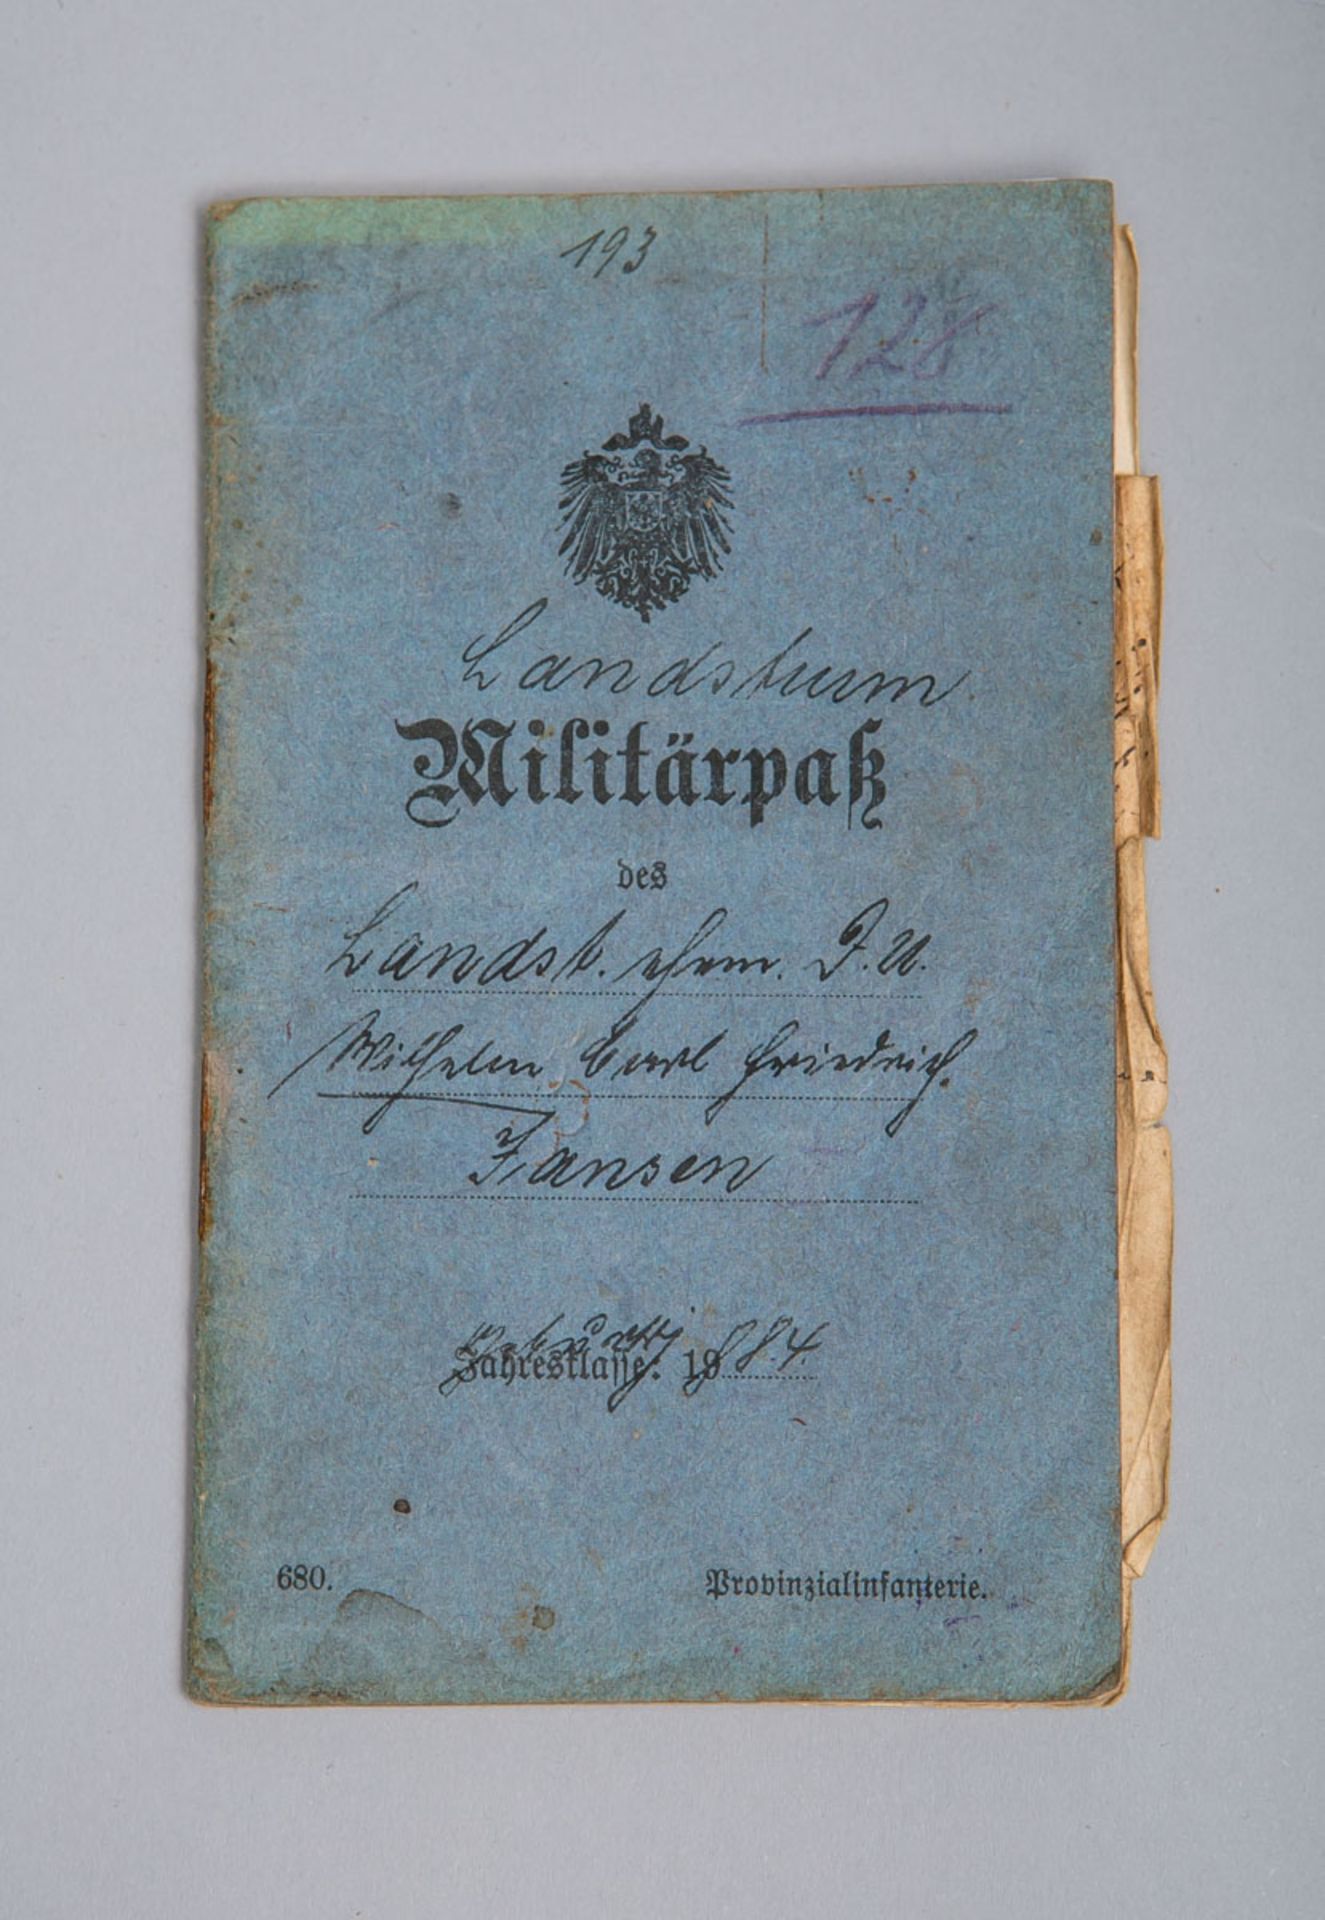 193
128
Landsturm
Militärpaß
des
Landst. ehem. D.U.
Wilhelm Carl Friedrich
Jansen
Jahresklasse: 1884
680.
Provinzialinfanterie.